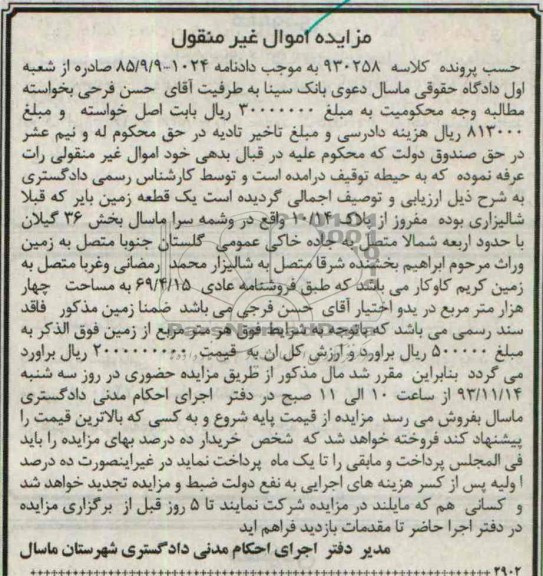 مزایده اموال غیر منقول
حسب پرونده کلاسه ۹۳۰۲۵۸ به موجب دادنامه ۱۰۲۴-۸۵/۹/۹ صادره از شعبه
اول دادگاه حقوقی ماسال دعوی بانک سینا به طرفیت آقای حسن فرحی بخواسته
مطالبه وجه محکومیت به مبلغ ۳۰۰۰۰۰۰۰ ریال بابت اصل خواسته و مبلغ
۸۱۳۰۰۰ ریال هزینه دادرسی و مبلغ تاخیر تادیه در حق محکوم له و نیم عشر
در حق صندوق دولت که محکوم علیه در قبال بدهی خود اموال غیر منقولی رات
عرفه نموده که به حیطه توقیف درامده است و توسط کارشناس رسمی دادگستری
به شرح ذیل ارزیابی و توصیف اجمالی گردیده است یک قطعه زمین بایر که قبلا
شالیزاری بوده مفروز از پلاک ۱۰/۱۴ واقع در وشمه سرا ماسال بخش ۳۶ گیلان
با حدود اربعه شمالا متصل به جاده خاکی عمومی گلستان جنوبا متصل به زمین
وراث مرحوم ابراهیم بخشنده شرقا متصل به شالیزار محمد رمضانی وغربا متصل به
زمین کریم کاوکار می باشد که طبق فروشنامه عادی ۶۹/۴/۱۵ به مساحت چهار
هزار متر مربع در یدو اختیار آقای حسن فرجی می باشد ضمنا زمین مذکور فاقد
سند رسمی می باشد که باتوجه به شرایط فوق هر متر مربع از زمین فوق الذکر به
مبلغ ۵۰۰۰۰۰ ریال براورد و ارزش کل ان به قیمت ۲۰۰۰۰۰۰۰۰۰ ریال براورد
می گردد بنابراین مقرر شد مال مذکور از طریق مزایده حضوری در روز سه شنبه
۹۳/۱۱/۱۴ از ساعت ۱۰ الی ۱۱ صبح در دفتر اجرای احکام مدنی دادگستری
ماسال بفروش می رسد مزایده از قیمت پایه شروع و به کسی که بالاترین قیمت را
پیشنهاد کند فروخته خواهد شد که شخص خریدار ده درصد بهای مزایده را باید
فی المجلس پرداخت و مابقی را تا یک ماه پرداخت نماید در غیراینصورت ده درصد
ا ولیه پس از کسر هزینه های اجرایی به نفع دولت ضبط و مزایده تجدید خواهد شد
و کسانی هم که مایلند در مزایده شرکت نمایند تا ۵ روز قبل از برگزاری مزایده
در دفتر اجرا حاضر تا مقدمات بازدید فراهم اید
مدیر دفتر اجرای احکام مدنی دادگستری شهرستان ماسال
۲۹۰۲